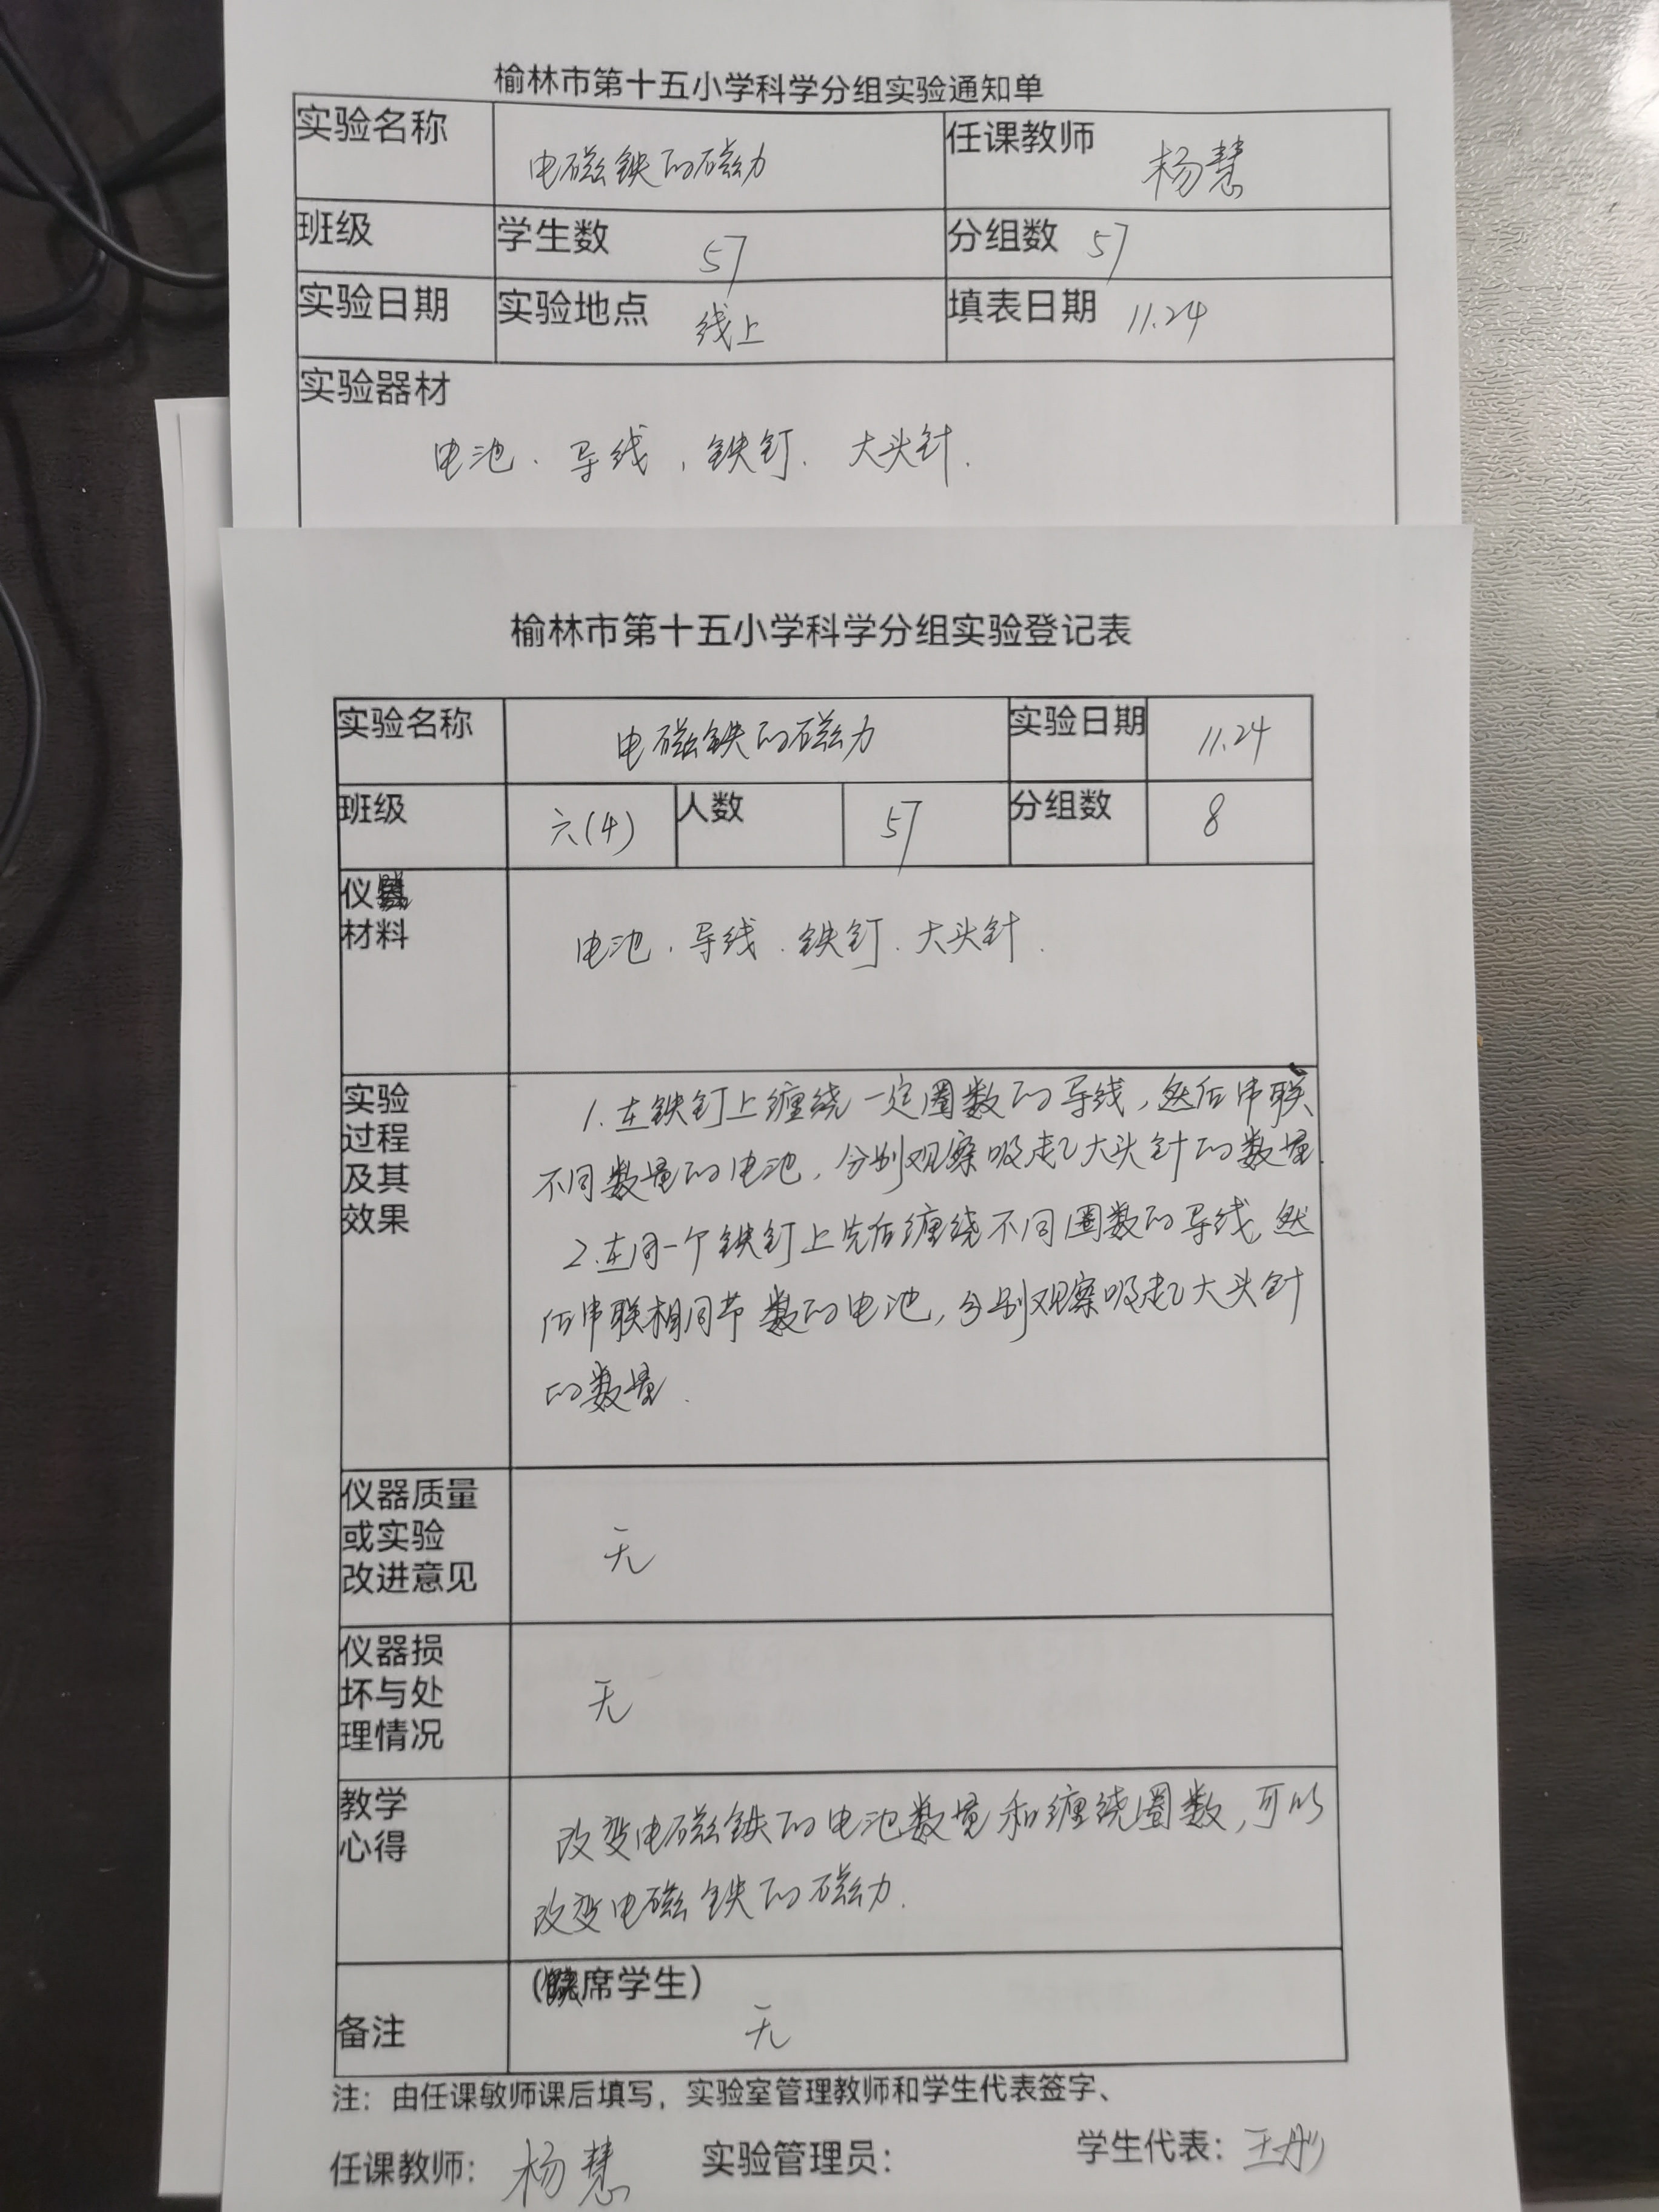 榆林市第十五小学科学分组实验通知单
实验名称 电磁铁的磁力 任课教师 杨慧
班级 学生数 57 分组数 57
实验日期 实验地点 线上 填表日期 11.24
实验器材
电池、导线、铁钉、大头针.
榆林市第十五小学科学分组实验登记表
实验名称 电磁铁的磁力 实验日期 11.24
班级 六(4) 人数 57 分组数 8
仪器
材料
电池、导线、铁钉、大头针.
实验
过程
及其
效果
1.在铁钉上缠绕一定圈数的导线,然后串联
不同数量的电池,分别观察吸起大头针的数量.
2.在同一个铁钉上先后缠绕不同圈数的导线,然
后串联相同节数的电池,分别观察吸起大头针
的数量.
仪器质量
或实验
改进意见
无
仪器损
坏与处
理情况
无
教学
心得
改变电磁铁的电池数量和缠绕圈数,可以
改变电磁铁的磁力.
备注
(缺席学生)
无
注：由任课敏师课后填写，实验室管理教师和学生代表签字、
任课教师: 杨慧 实验管理员: 学生代表: 王彤